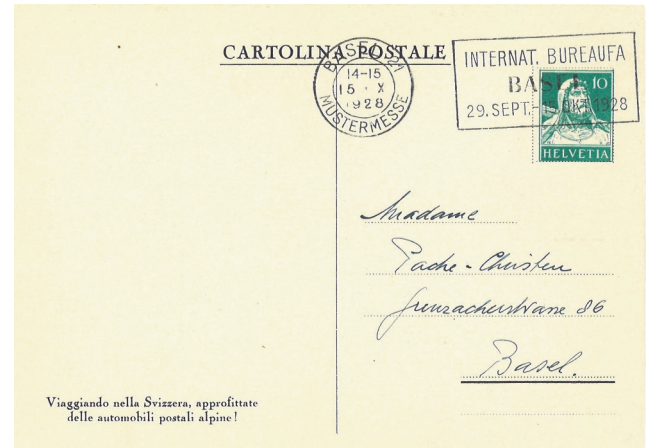 CARTOLINA POSTALE
BASEL 21
14-15
15. X
1928
MUSTERMESSE
INTERNAT. BUREAUFA
BASEL
29. SEPT.-15. OKT. 1928
10
HELVETIA
Madame
Pache-Christen
Grenzacherstrasse 86
Basel.
Viaggiando nella Svizzera, approfittate
delle automobili postali alpine!